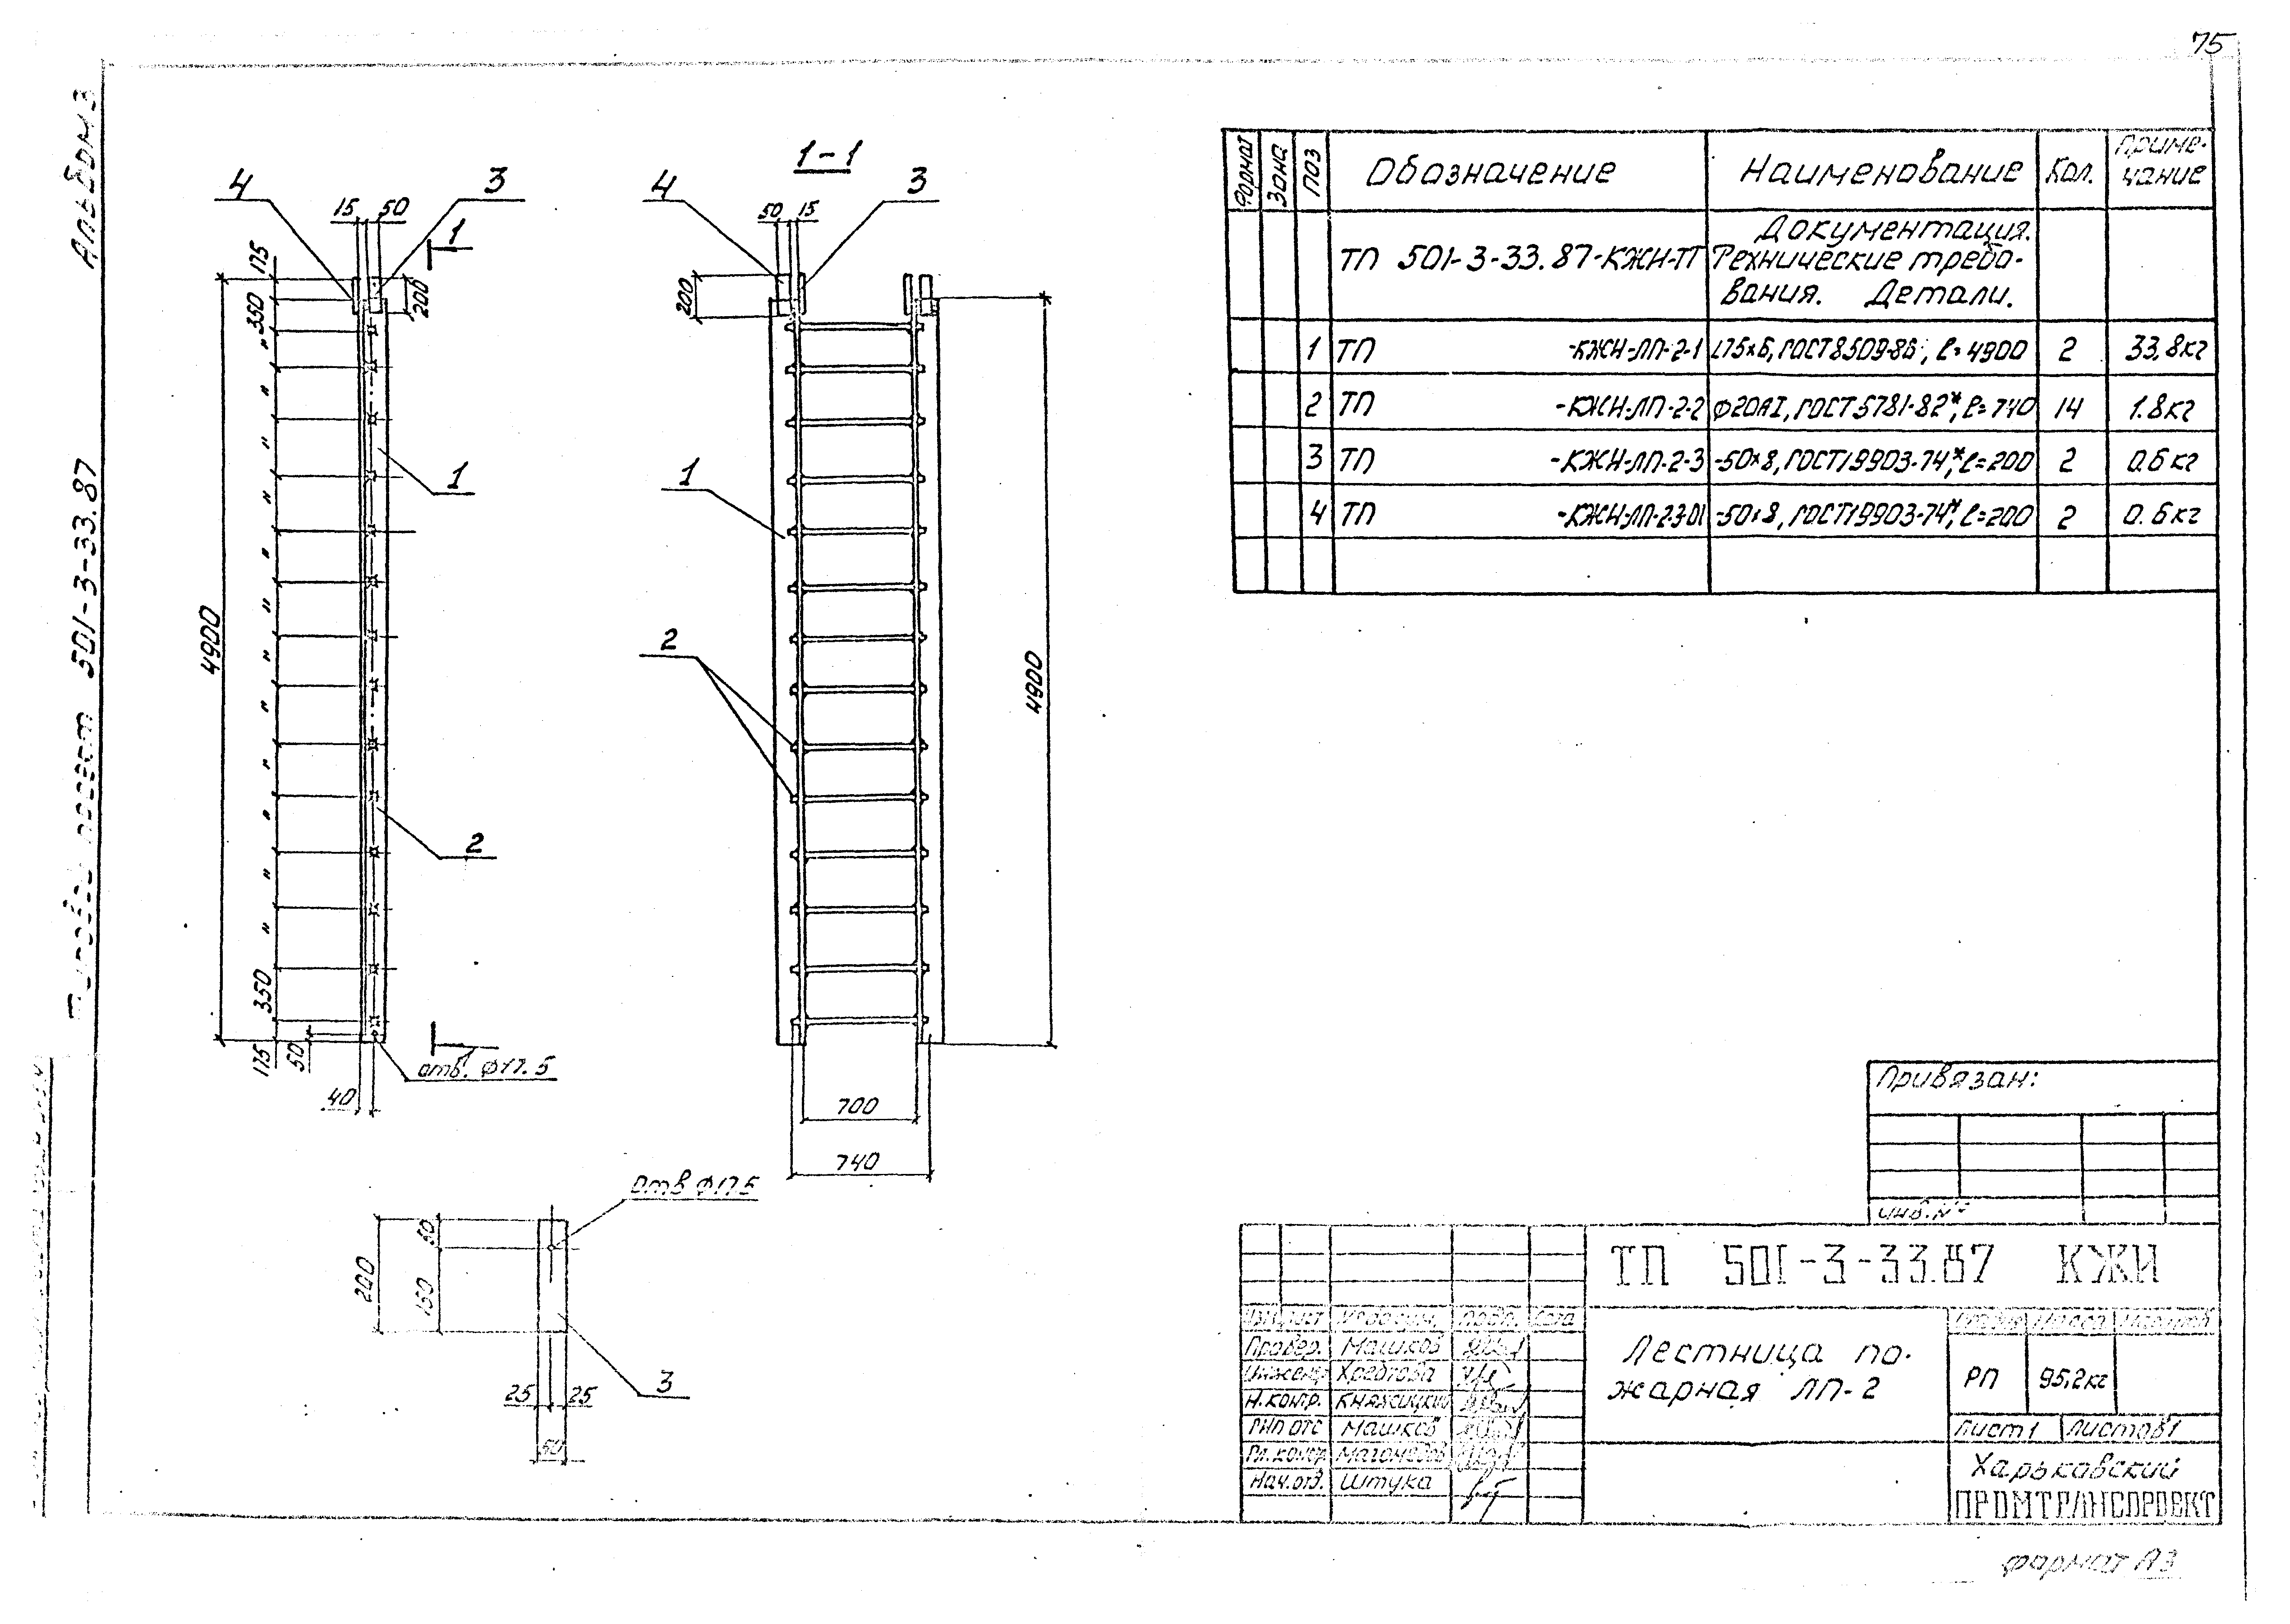 75
Альбом 3
Типовой проект 501-3-33.87
4
3
15
50
1
175
350
200
4900
"
"
"
"
"
"
"
"
"
"
"
"
1
2
350
175
50
отв. Ф17.5
40
1-1
4
3
50
15
200
1
2
4900
700
740
отв Ф17.5
200
50
150
3
25
25
50
Формат
Зона
Поз
Обозначение
Наименование
Кол.
Приме-
чание
Документация.
ТП 501-3-33.87-КЖИ-ТТ
Технические требо-
вания. Детали.
1 ТП -КЖИ-ЛП-2-1 L75х6, ГОСТ 8509-86, ℓ=4900 2 33,8кг
2 ТП -КЖИ-ЛП-2-2 Ф20АI, ГОСТ 5781-82*, ℓ=740 14 1.8кг
3 ТП -КЖИ-ЛП-2-3 -50х8, ГОСТ 19903-74*, ℓ=200 2 0.6кг
4 ТП -КЖИ-ЛП-2-3-01 -50х8, ГОСТ 19903-74*, ℓ=200 2 0.6кг
Привязан:
инв. №
ТП 501-3-33.87 КЖИ
Изм. Лист № докум. Подп. Дата
Провер. Машков
Инженер
Н.контр. Княжицкий
ГИП ОТС Машков
Гл.констр. Магомедов
Нач.отд. Штука
Лестница по-
жарная ЛП-2
Стадия Масса Масштаб
РП 95,2кг
Лист 1 Листов 1
Харьковский
ПРОМТРАНСПРОЕКТ
формат А3